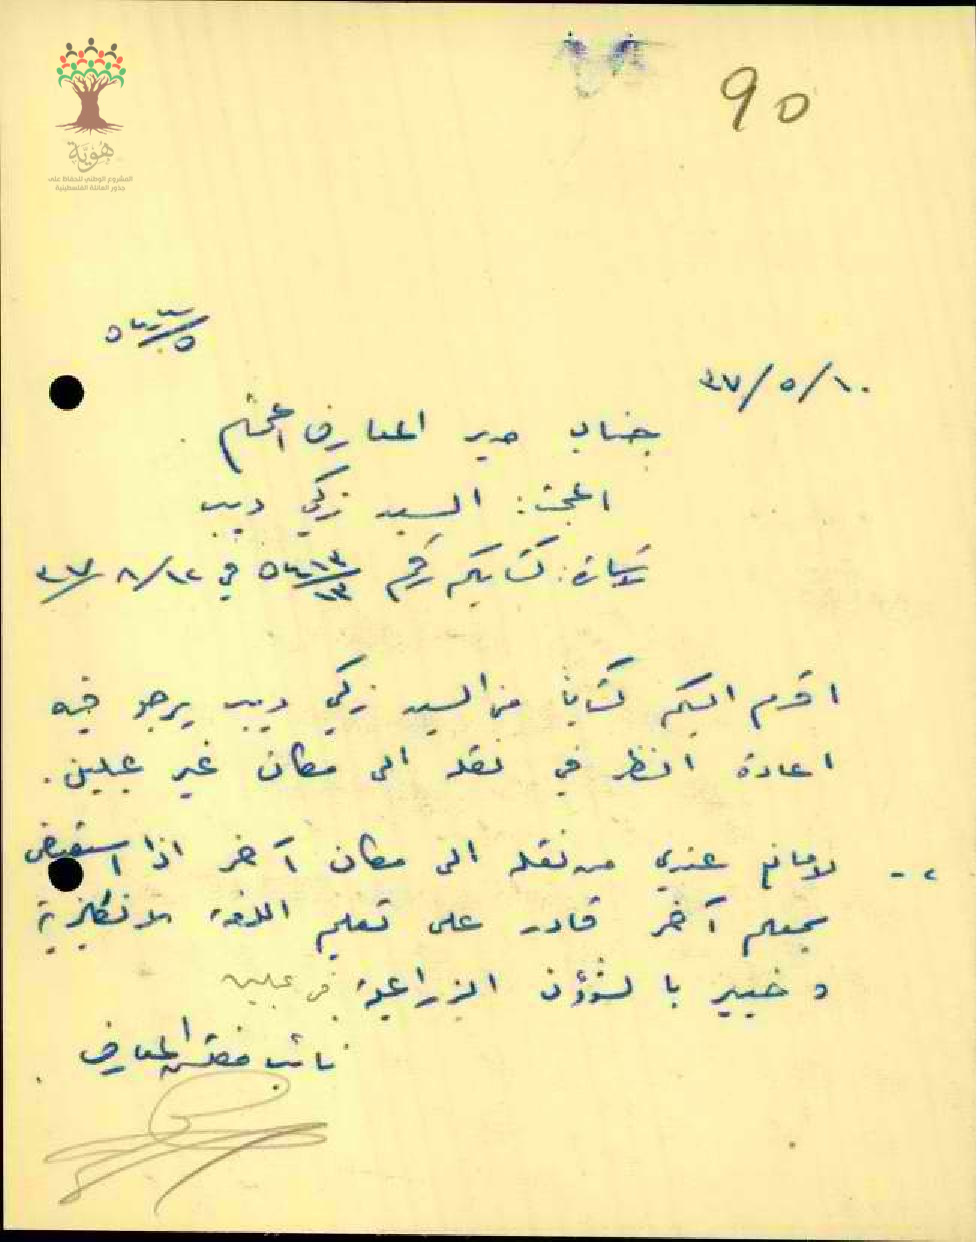 هُوِيَّة
المشروع الوطني للحفاظ على
جذور العائلة الفلسطينية
90
٣٧/٥/١٠
جناب مدير المعارف المحترم
المبحث: السيد زكي ديب
الاشارة: كتابكم رقم في ٣٧/٨/١٢
اقدم اليكم كتابا من السيد زكي ديب يرجو فيه
اعادة النظر في نقله الى مكان غير عبلين.
٢- لا مانع عندي من نقله الى مكان آخر اذا استعيض
بمعلم آخر قادر على تعليم اللغة الانكليزية
و خبير بالشؤون الزراعية في عبلين
نائب مفتش المعارف